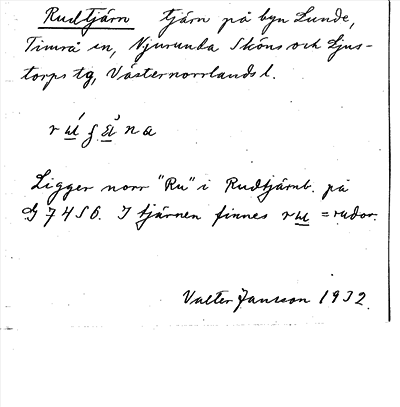 Rudtjärn tjärn på byn Lunde,
Timrå sn, Njurunda Sköns och Ljus-
torps tg, Västernorrlands l.
Ligger norr "Ru" i Rudtjärnb. på
G 7456. I tjärnen finnes ru = rudor.
Valter Jansson 1932.